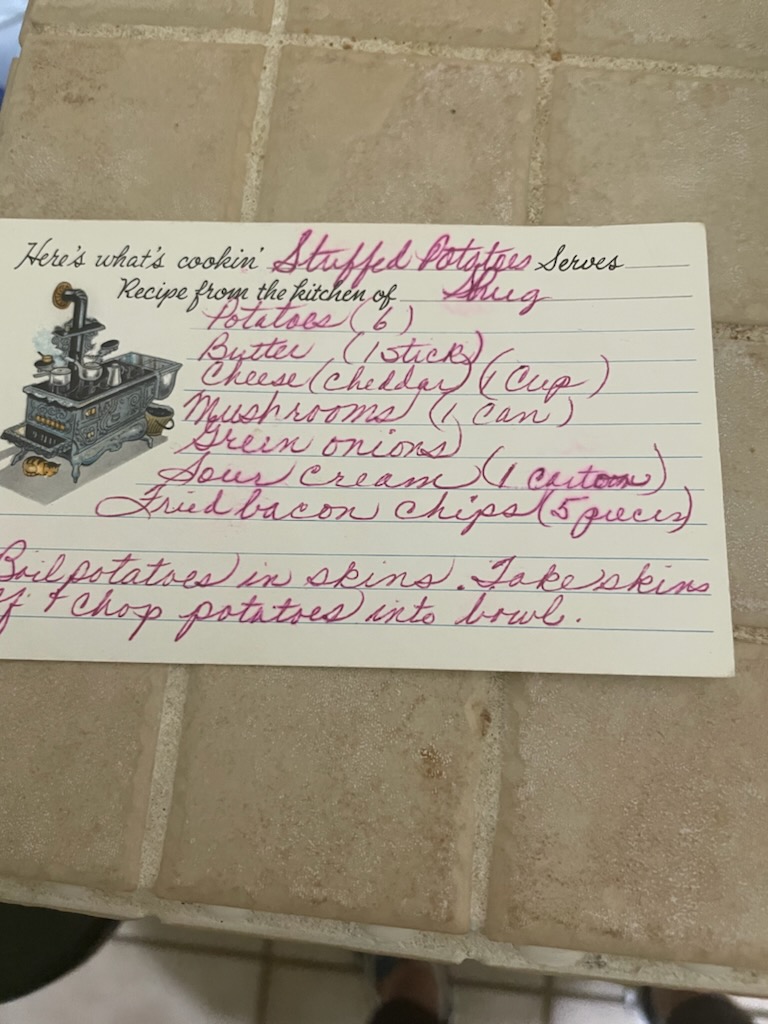 Here's what's cookin' Stuffed Potatoes Serves
Recipe from the kitchen of Shug
Potatoes (6)
Butter (1 stick)
Cheese (cheddar) (1 cup)
Mushrooms (1 can)
Green onions
Sour cream (1 cartoon)
Fried bacon chips (5 pieces)
Boil potatoes in skins. Take skins
ff & chop potatoes into bowl.